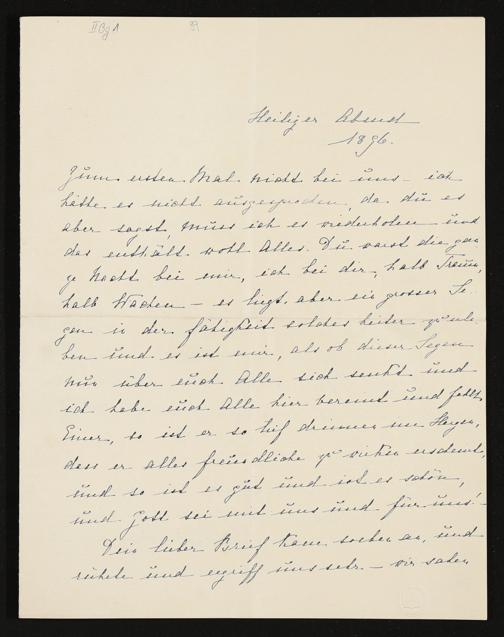 II Bg 1
Heiliger Abend
1896.
Zum ersten Mal nicht bei uns - ich
hätte es nicht ausgesprochen, da du es
aber sagst, muss ich es wiederholen und
das enthält wohl Alles. Du warst die gan
ze Nacht bei mir, ich bei dir, halb Traum,
halb Wachen - es liegt aber ein grosser Se-
gen in der fähigkeit solches heiter zu
ben und es ist mir, als ob dieser Segen
nun über euch Alle sich senkt und
ich habe euch Alle hier vereint und fehlt
Einer, so ist er so tief drinnen im Herzen,
dass er alles freundliche zu wirken erscheint,
und so ist es gut und ist es schön,
und Gott sei mit uns und für uns! -
Dein lieber Brief kam soeben an, und
rührte und ergriff uns sehr. - wir sahen